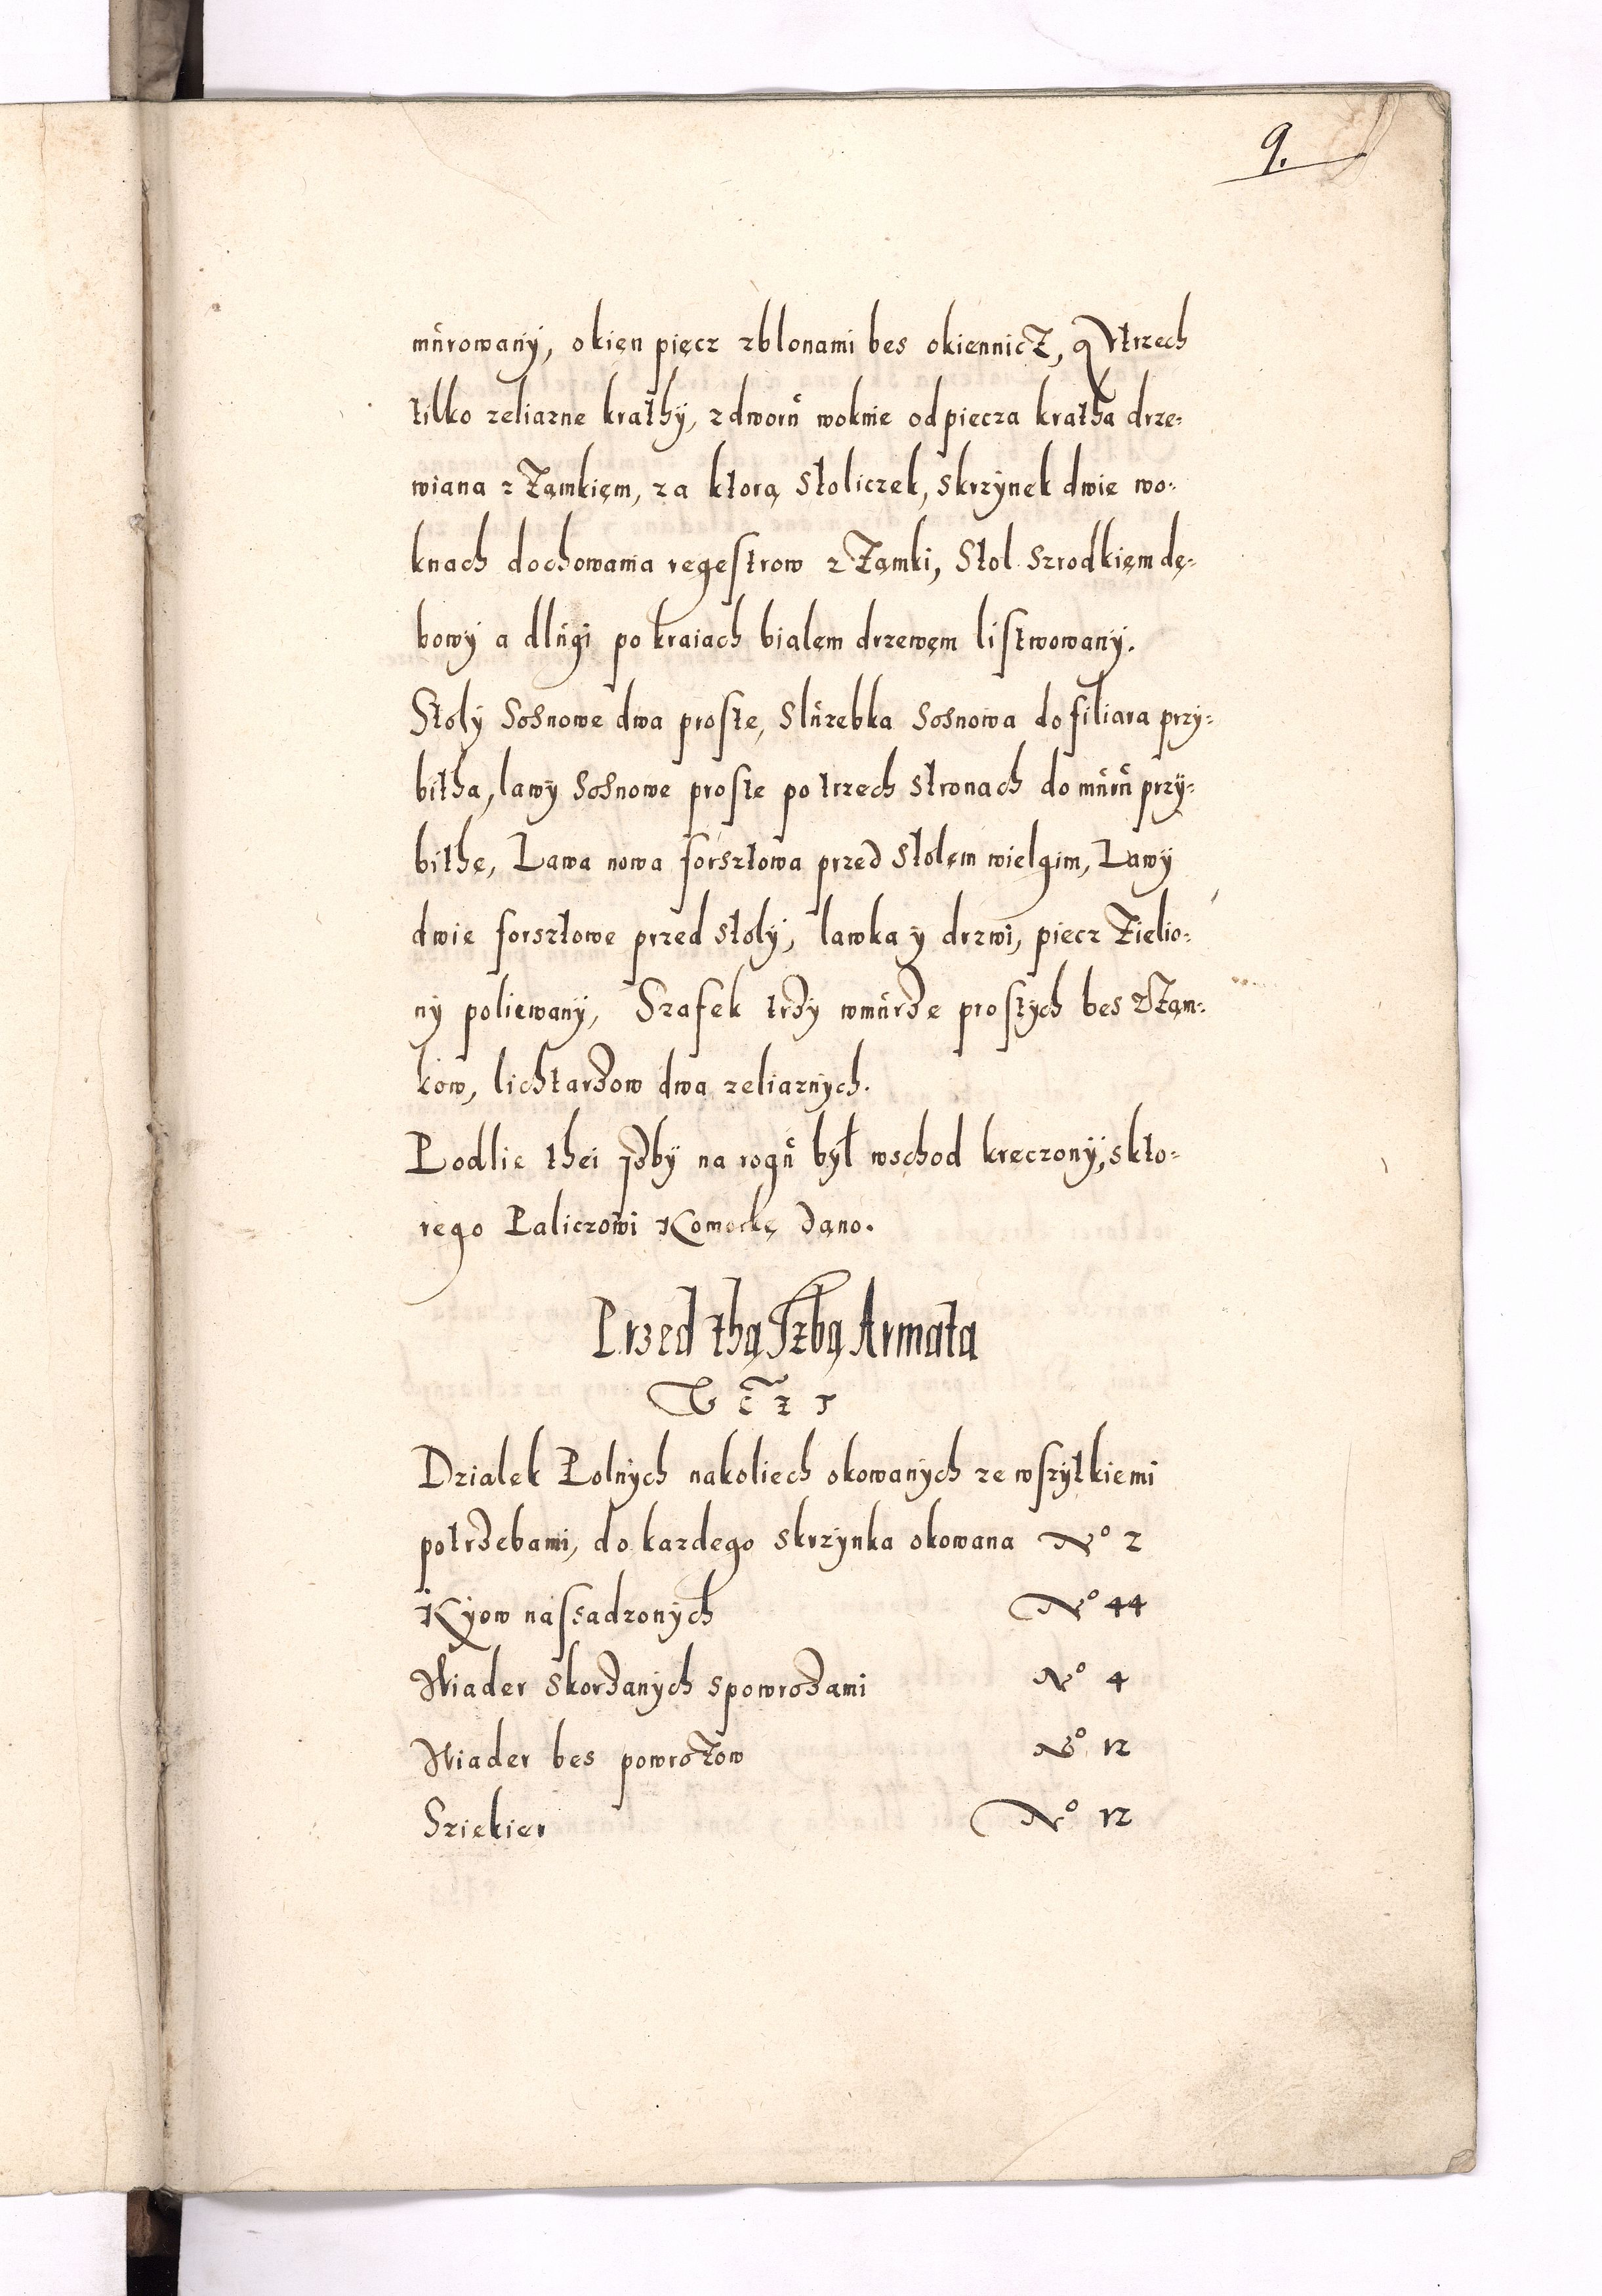 9.
murowany, okien pięcz zblonami bes okiennicz, Wtrzech
tilko zeliazne krathy, zdworu woknie odpiecza kratha drze-
wiana zZamkięm, za ktorą Stoliczek, skrzynek dwie wo-
knach dochowania regestrow zZamki, Stol Szrodkięm dę-
bowy a dlugi po kraiach bialęm drzewęm listwowany.
Stoly Sosnowe dwa proste, Sluzebka Sosnowa do filiara przy-
bitha, lawy Sosnowe proste po trzech stronach do muru przy-
bithe, Lawa nowa forsztowa przed stolęm wielgim, Lawy
dwie forsztowe przed stoly, lawka y drzwi, piecz Zielio-
ny poliewany, Szafek trzy wmurze prostych bes zZam-
kow, lichtarzow dwa zeliaznych.
Podlie thei Izby na rogu był wschod kreczony, skto-
rego Paliczowi Komorkę dano.
Przed thą Izbą Armata
Dzialek Polnych nakoliech okowanych ze wszytkiemi
potrzebami, do kazdego skrzynka okowana No 2
Kyow nassadzonych No 44
Wiader skorzanych spowrozami No 4
Wiader bes powrozow No 12
Sziekier No 12